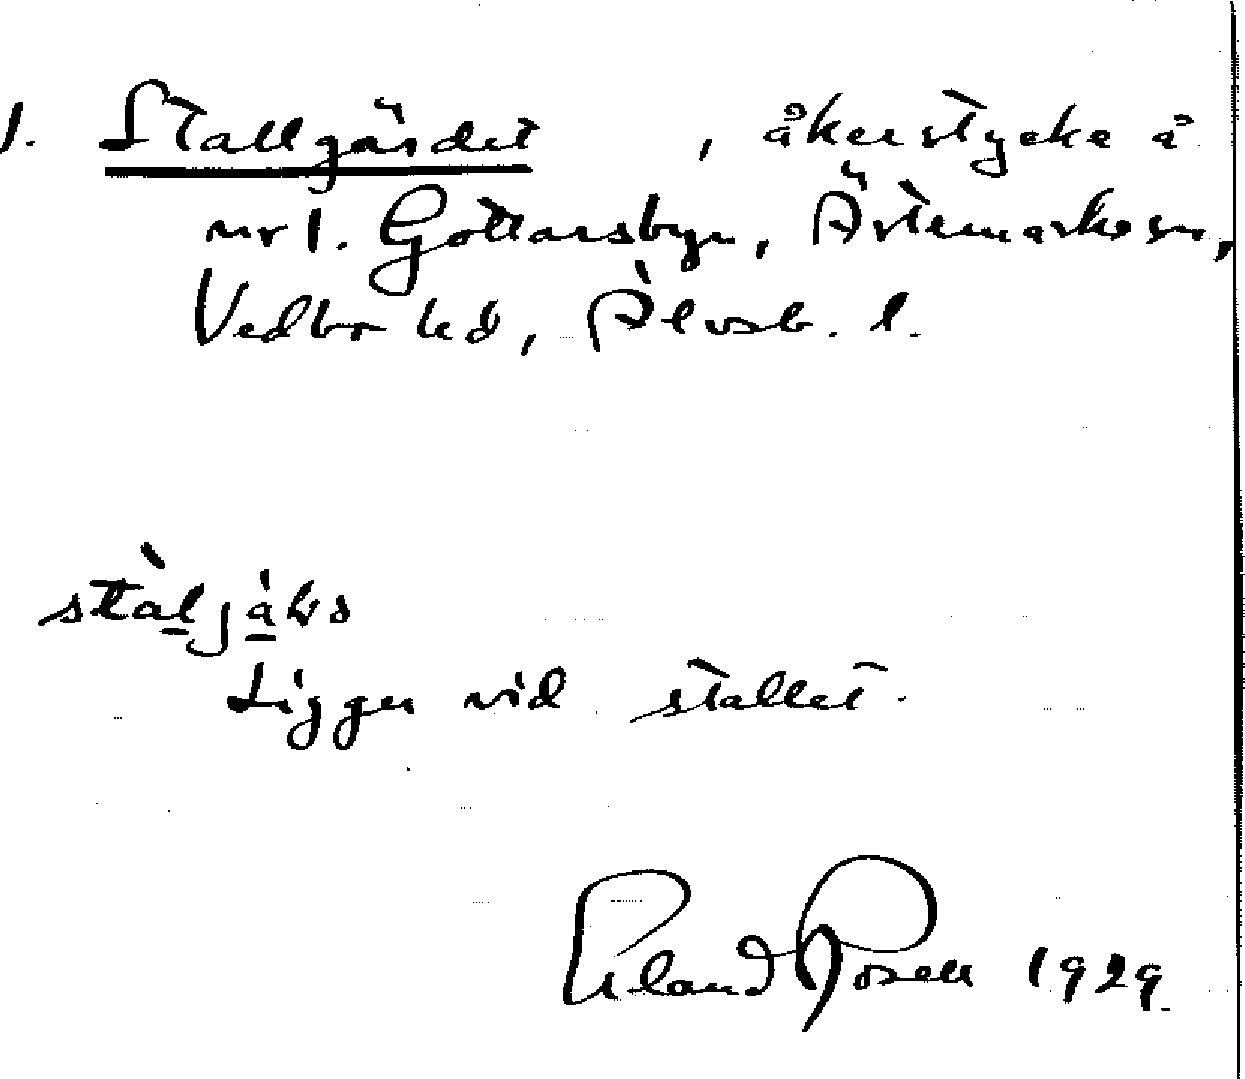 1. Stallgärdet , åkerstycke å
nr 1. Gottarsbyn, Ärtemarks sn,
Vedbo hd, Älvsb. l.
Ligger vid stallet.
Erland Rosell 1929